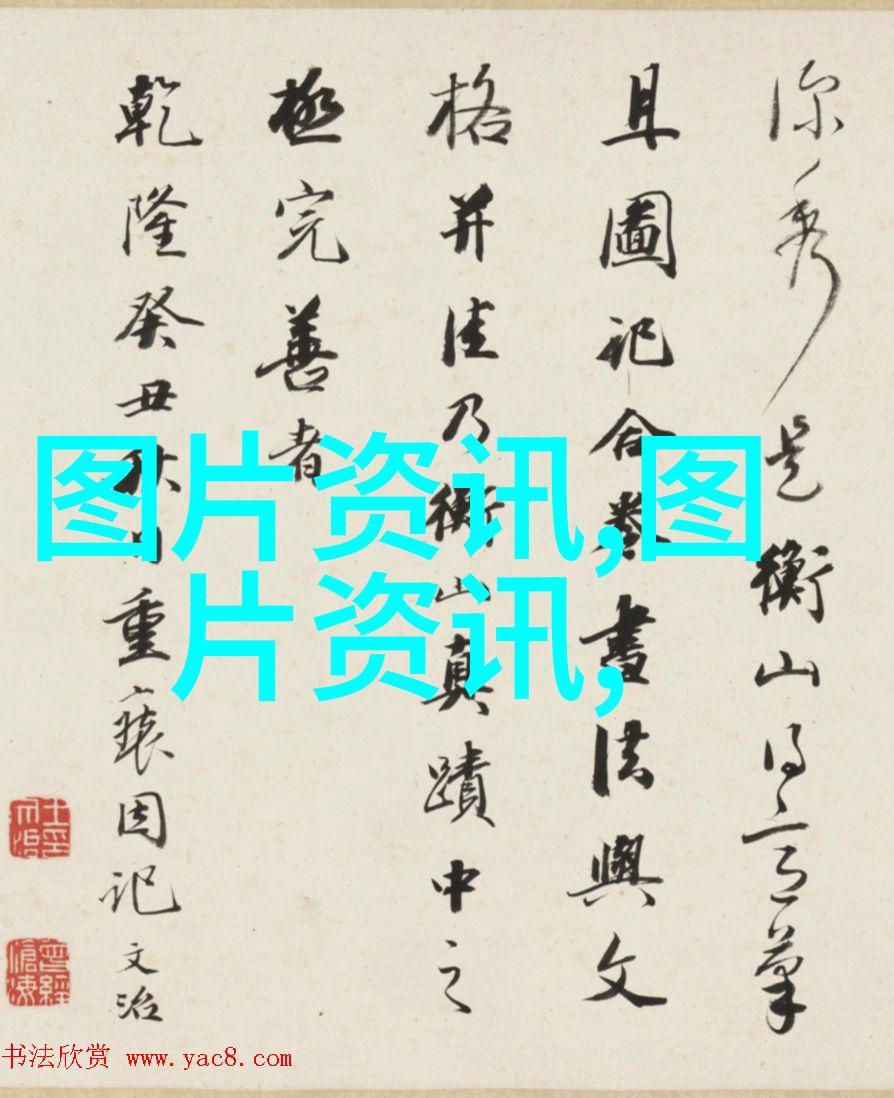 深秀是衡山得意筆
且圖記合卷書法與文
格并佳乃衡山真蹟中之
極完善者
乾隆癸丑秋日重裝因記
文治
图片资讯,图
片资讯,
书法欣赏 www.yac8.com